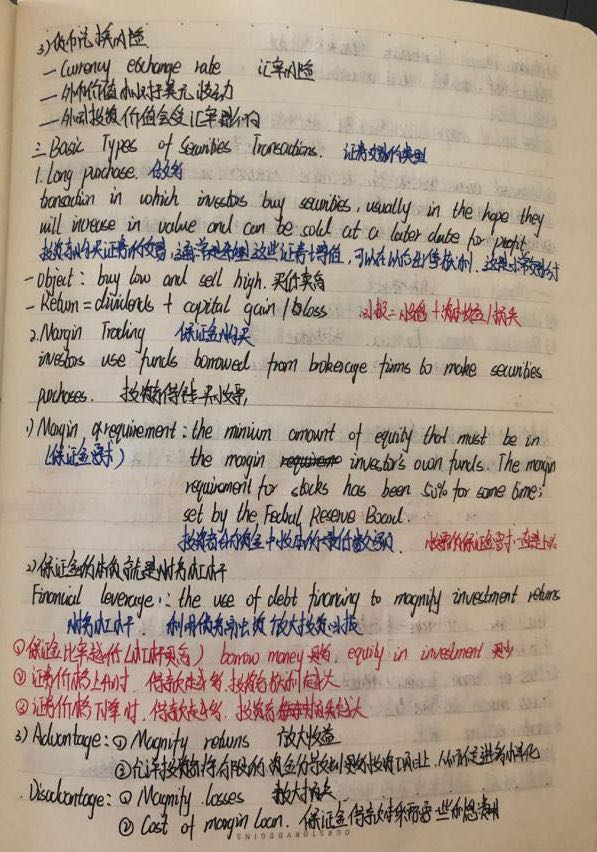 3) 货币兑换风险
— Currency exchange rate 汇率风险
— 外币价值相对于美元波动
— 外国投资价值会受汇率影响
二 Basic Types of Securities Transactions. 证券交易的类型
1. Long purchase. 做多
transaction in which investors buy securities, usually in the hope they
will increase in value and can be sold at a later date for profit,
投资者购买证券的交易,通常是希望这些证券增值,可以在以后出售获利,这是
- Object: buy low and sell high. 买低卖高
- Return = dividends + capital gain / loss 回报 = 股息 + 资本收益/损失
2. Margin Trading 保证金购买
investors use funds borrowed from brokerage firms to make securities
purchases. 投资者借钱买股票,
1) Margin requirement: the minium amount of equity that must be in
(保证金要求) the margin investor's own funds. The margin
requirement for stocks has been 50% for some time;
set by the Fedral Reserve Board.
投资者自有资金中投入的最低数额 股票的保证金要求一直是50%
2) 保证金的本质就是财务杠杆
Financial leverage: the use of debt financing to magnify investment returns
财务杠杆. 利用债务融资放大投资回报
① 保证金比率越低(杠杆更高) borrow money 更多, equity in investment 更少
② 证券价格上升时, 借款越多, 投资者获利越大
③ 证券价格下降时, 借款越多, 投资者损失越大
3) Advantage: ① Magnify returns 放大收益
② 允许投资者将有限的资金分散到更多投资工具上,从而促进多样化
Disadvantage: ① Magnify losses 放大损失
② Cost of margin loan. 保证金借款
OURSTORYBEGINS